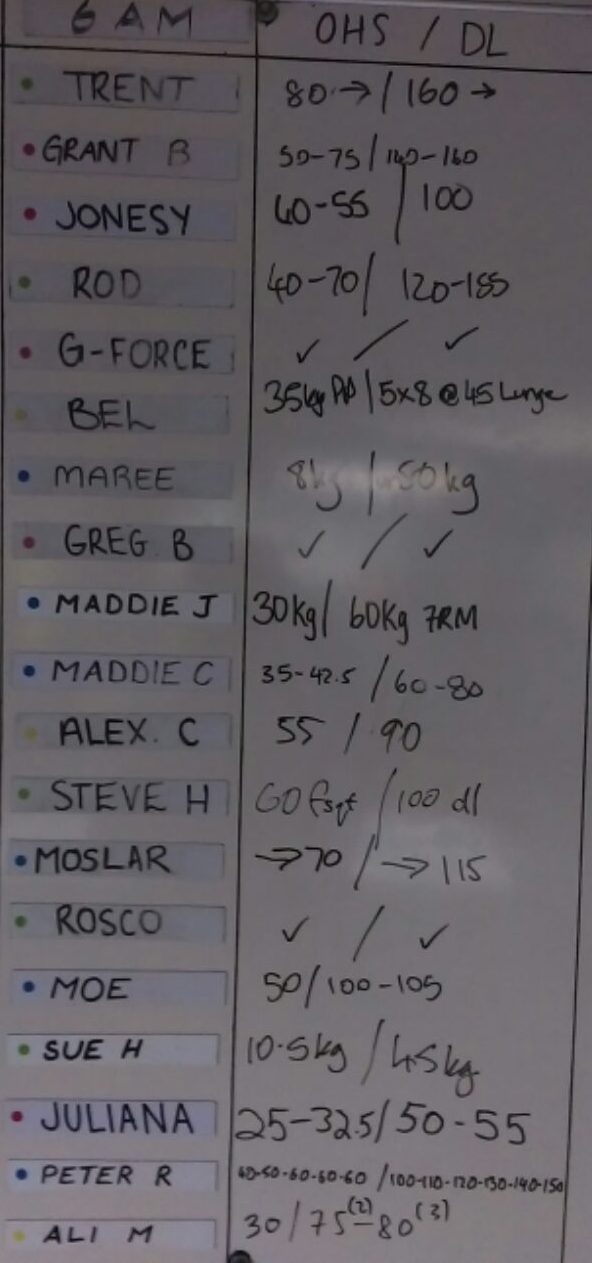 6 AM OHS / DL
TRENT 80 → / 160 →
GRANT B 50-75 / 140-160
JONESY 40-55 / 100
ROD 40-70 / 120-185
G-FORCE ✓ / ✓
BEL 35kg PP / 5x8 @ 45 Lunge
MAREE 8kg / 50kg
GREG B ✓ / ✓
MADDIE J 30Kg / 60Kg 7RM
MADDIE C 35-42.5 / 60-80
ALEX. C 55 / 90
STEVE H 60 fsqt / 100 dl
MOSLAR → 70 / → 115
ROSCO ✓ / ✓
MOE 50 / 100-105
SUE H 10.5kg / 45kg
JULIANA 25-32.5 / 50-55
PETER R 40-50-60-60-60 / 100-110-120-130-140-150
ALI M 30 / 75(2)-80(3)